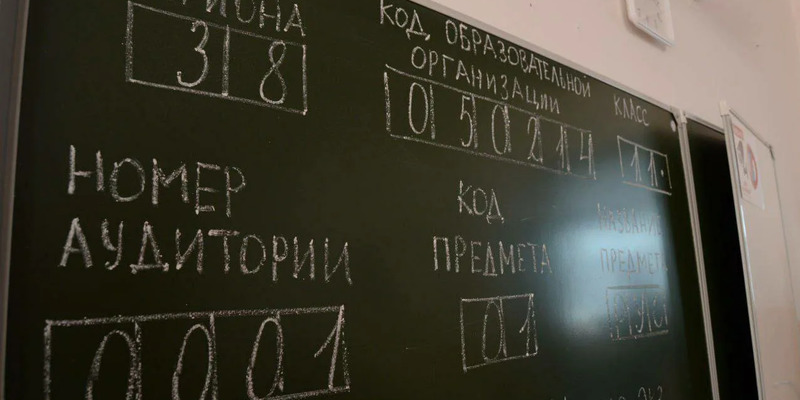 РЕГИОНА
38
КОД ОБРАЗОВАТЕЛЬНОЙ
ОРГАНИЗАЦИИ
050214
КЛАСС
11.
НОМЕР
АУДИТОРИИ
0001
КОД
ПРЕДМЕТА
01
НАЗВАНИЕ
ПРЕДМЕТА